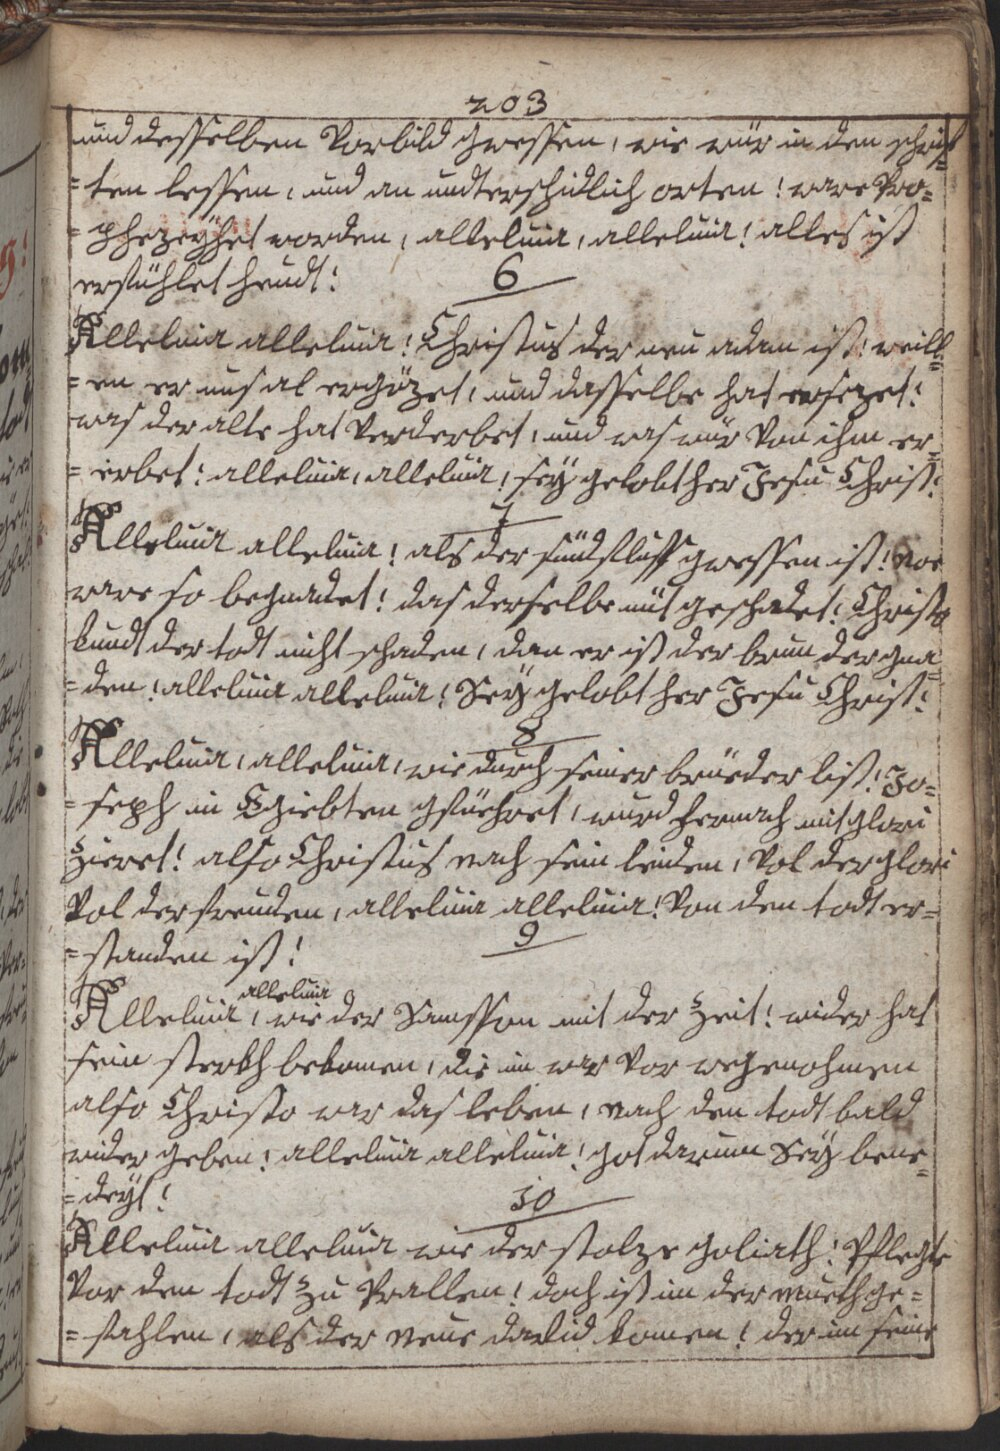 203
und desselben Vorbild gwessen, wie wür in den schrif=
=ten lessen, und an undterschidlich orten! ware Pro=
=phezeÿhet worden, alleluia, alleluia! alles ist
erfühlet heudt!
6
Alleluia alleluia! Christus der neu adam ist! weill=
=en er uns al ergözet, und dasselbe hat ersezet!
was der alte hat Verderbet, und was wür Von ihm er=
=erbet! alleluia, alleluia, seÿ gelobt her Jesu Christ!
7
Alleluia alleluia! als der sündfluss gwessen ist! Noe
ware so begnadet! das derselbe nüt geschadet! Christo
kundt der todt nicht schaden, dan er ist der brun der gna=
=den! alleluia alleluia! Seÿ gelobt her Jesu Christ!
8
Alleluia, alleluia, wie durch seiner brüeder list! Jo=
=seph in Egiebten gfüehret, wurd hernach mit glori
zieret! also Christus nach sein leiden, Vol der glori
Vol der freuden, alleluia alleluia! Von den todt er=
=standen ist!
9
alleluia
Alleluia, wie der Samsson mit der zeit! wider hat
sein sterkh bekomen, die im war Vor wegenohmen
also Christo war das leben, nach den todt bald
wider geben! alleluia alleluia! got darum Seÿ bene=
=deyt!
10
Alleluia alleluia wie der stolze goliath! Pflegte
Vor den todt zu Prallen! doch ist im der mueth ge=
=fahlen, als der neue david komen! der im seine